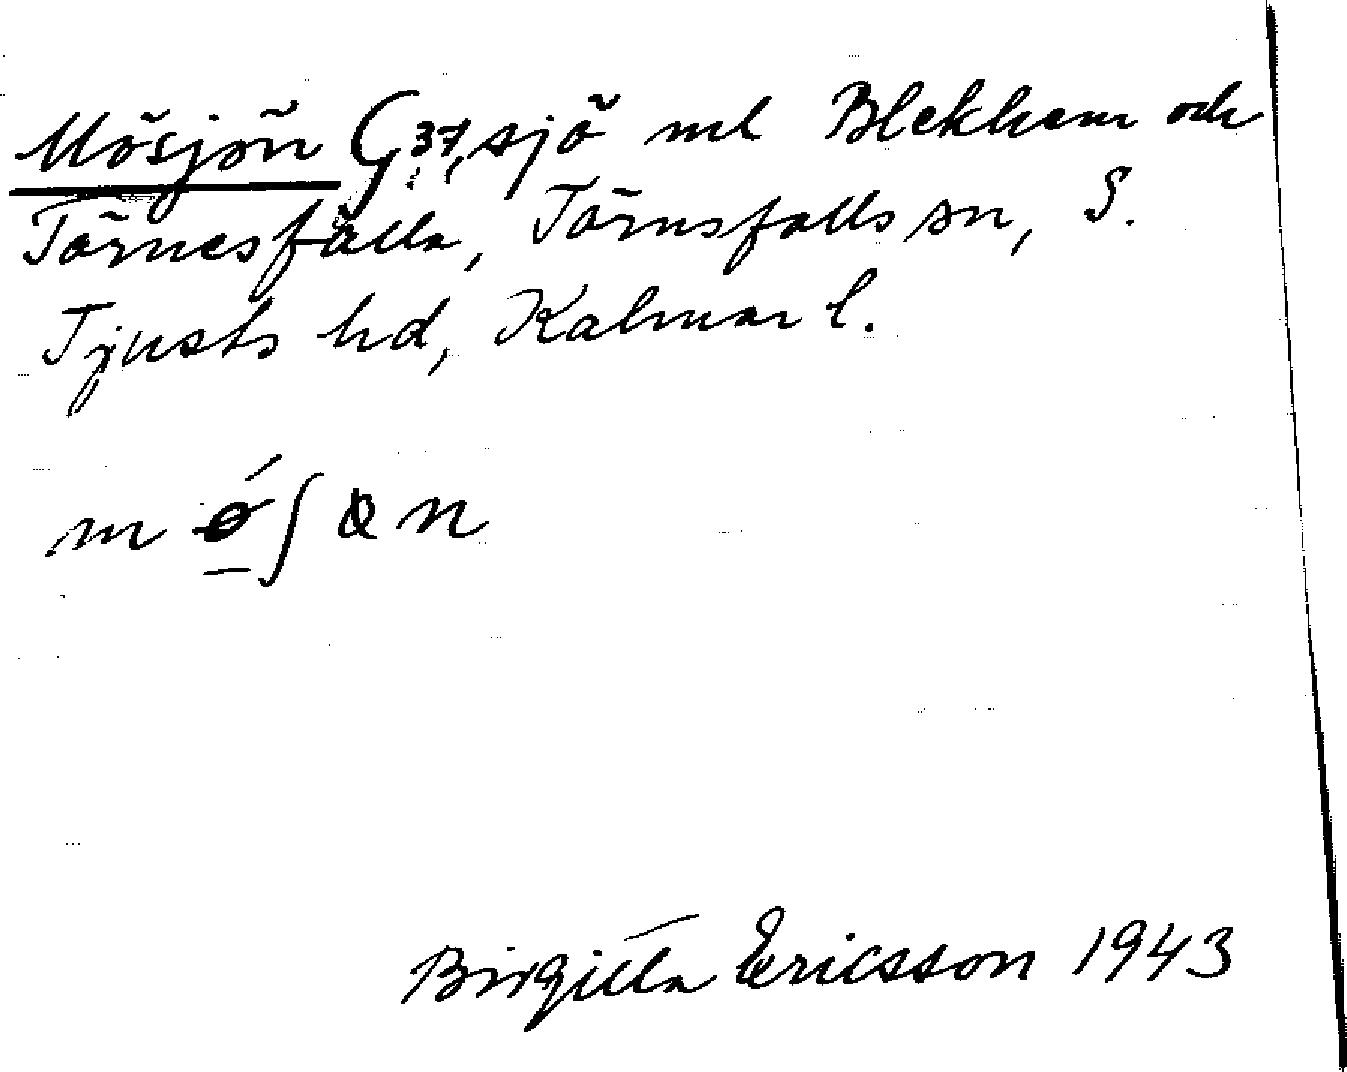 Mösjön G37, sjö ml Blekhem och
Törnesfalla, Törnsfalls sn, S.
Tjusts hd, Kalmar l.
Birgitta Ericsson 1943